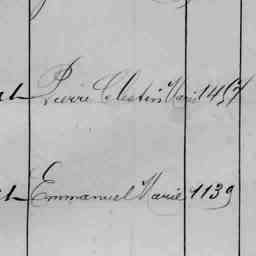 Pierre Célestin Marie 1457
Emmanuel Marie 1139